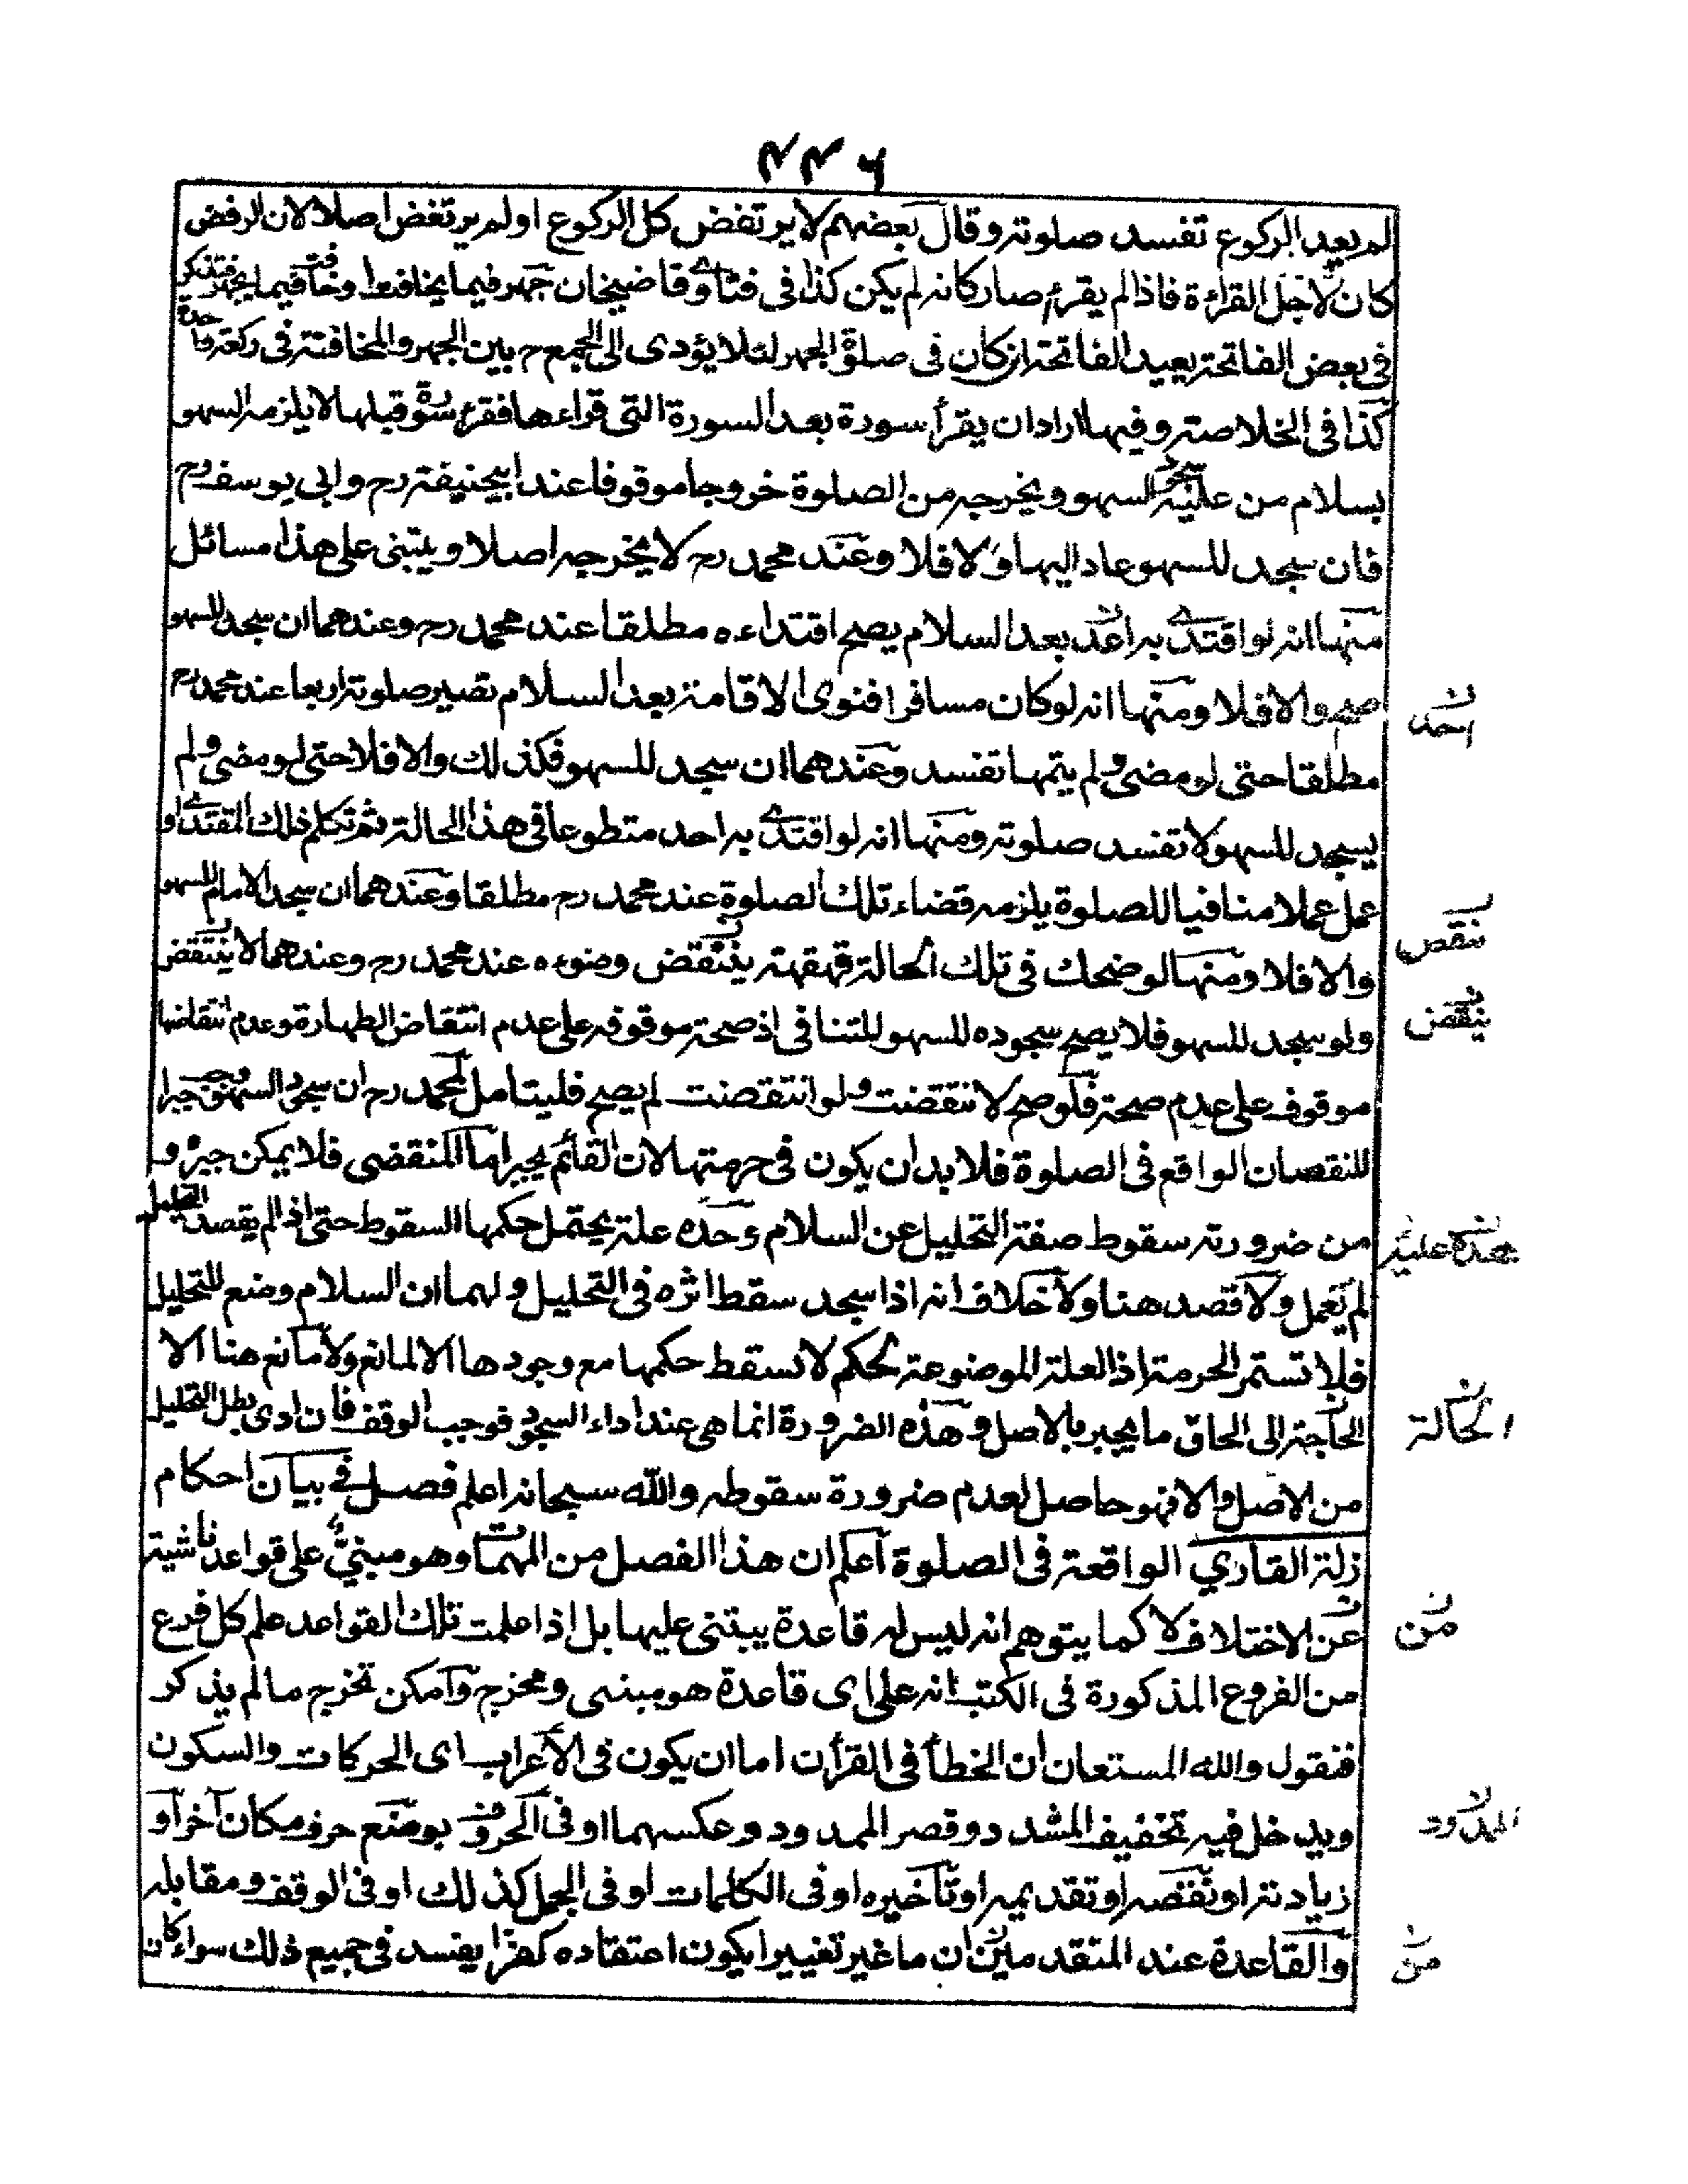 ۴۴۶
لم يعيد الركوع تفسد صلوته وقال بعضهم لا يرتفض كل الركوع اولم يرتفض اصلا لان الرفض
كان لاجل القراءة فاذا لم يقرء صار كانه لم يكن كذا فى فتاوى قاضيخان جهر فيما يخافت او خافت فيما يجهر فتذكر
فى بعض الفاتحة يعيد الفاتحة ان كان فى صلوة الجهر لئلا يؤدى الى الجمع بين الجهر والمخافتة فى ركعة واحدة
كذا فى الخلاصة وفيها اراد ان يقرأ سورة بعد السورة التى قراءها فقرء سورة قبلها لا يلزمه السهو
بسلام من عليه سجود السهو ويخرجه من الصلوة خروجا موقوفا عند ابيحنيفة رح وابى يوسف رح
فان سجد للسهو عاد اليها والا فلا وعند محمد رح لا يخرجه اصلا ويبتنى على هذا مسائل
منها انه لو اقتدى به احد بعد السلام يصح اقتداءه مطلقا عند محمد رح وعندهما ان سجد للسهو
صح والا فلا ومنها انه لو كان مسافرا فنوى الاقامة بعد السلام تصير صلوته اربعا عند محمد رح
احد
مطلقا حتى لو مضى ولم يتمها تفسد وعندهما ان سجد للسهو فكذلك والا فلا حتى لو مضى ولم
يسجد للسهو لا تفسد صلوته ومنها انه لو اقتدى به احد متطوعا فى هذا الحالة ثم تكلم ذلك المقتدى او
عمل عملا منافيا للصلوة يلزمه قضاء تلك الصلوة عند محمد رح مطلقا وعندهما ان سجد الامام للسهو
والا فلا ومنها لو ضحك فى تلك الحالة قهقهة ينتقض وضوءه عند محمد رح وعندهما لا ينتقض
ينقض
ولو سجد للسهو فلا يصح سجوده للسهو للتنافى اذ صحته موقوفه على عدم انتقاض الطهارة وعدم انتقاضها
ينقض
موقوف على عدم صحته فلو صح لانتقضت ولو انتقضت لم يصح فليتامل لمحمد رح ان سجود السهو وجب جبرا
للنقصان الواقع فى الصلوة فلا بد ان يكون فى حرمتها لان القائم يجبر اما المنقضى فلا يمكن جبره و
من ضرورته سقوط صفة التحليل عن السلام وحده علة يحتمل حكمها السقوط حتى اذا لم يقصد التحليل
لم يعمل ولا قصد هنا ولا خلاف انه اذا سجد سقط اثره فى التحليل ولهما ان السلام وضع للتحليل
فلا تستمر الحرمة اذ العلة الموضوعة لحكم لا تسقط حكمها مع وجودها الا لمانع ولا مانع هنا الا
الحاجة الى الحاق ما يجبر بالاصل وهذه الضرورة انما هى عند اداء السجود فوجب الوقف فان ادى بطل التحليل
الحالة
من الاصل والا فهو حاصل لعدم ضرورة سقوطه والله سبحانه اعلم فصل فى بيان احكام
زلة القارى الواقعة فى الصلوة اعلم ان هذا الفصل من المهمات وهو مبنى على قواعد ناشية
عن الاختلاف لا كما يتوهم انه ليس له قاعدة يبتنى عليها بل اذا علمت تلك القواعد علم كل فرع
من
من الفروع المذكورة فى الكتب انه على اى قاعدة هو مبنى ومخرج وامكن تخرج ما لم يذكر
فنقول والله المستعان ان الخطأ فى القرأن اما ان يكون فى الاعراب اى الحركات والسكون
ويدخل فيه تخفيف المشدد وقصر الممدود وعكسهما او فى الحروف بوضع حرف مكان آخر او
الممدود
زيادته او نقصه او تقديمه او تأخيره او فى الكلمات او فى الجمل كذلك او فى الوقف ومقابله
والقاعدة عند المتقدمين ان ما غير تغييرا يكون اعتقاده كفرا يفسد فى جميع ذلك سواء كان
من